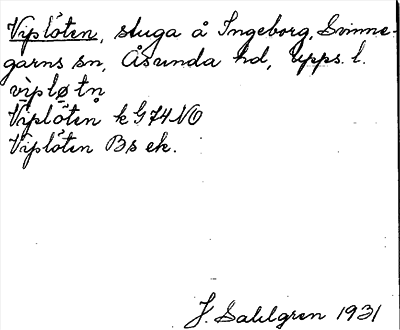 Viplöten, stuga å Ingeborg, Svinne-
garns sn, Åsunda hd, Upps. l.
vìpløtn̥
Viplöten k G74NO
Viplöten Bs ek.
J. Sahlgren 1931